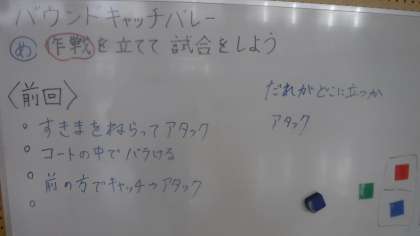 バウンドキャッチバレー
め 作戦を立てて試合をしよう
〈前回〉
○ すきまをねらってアタック
○ コートの中でバラける
○ 前の方でキャッチ→アタック
○
だれがどこに立つか
アタック